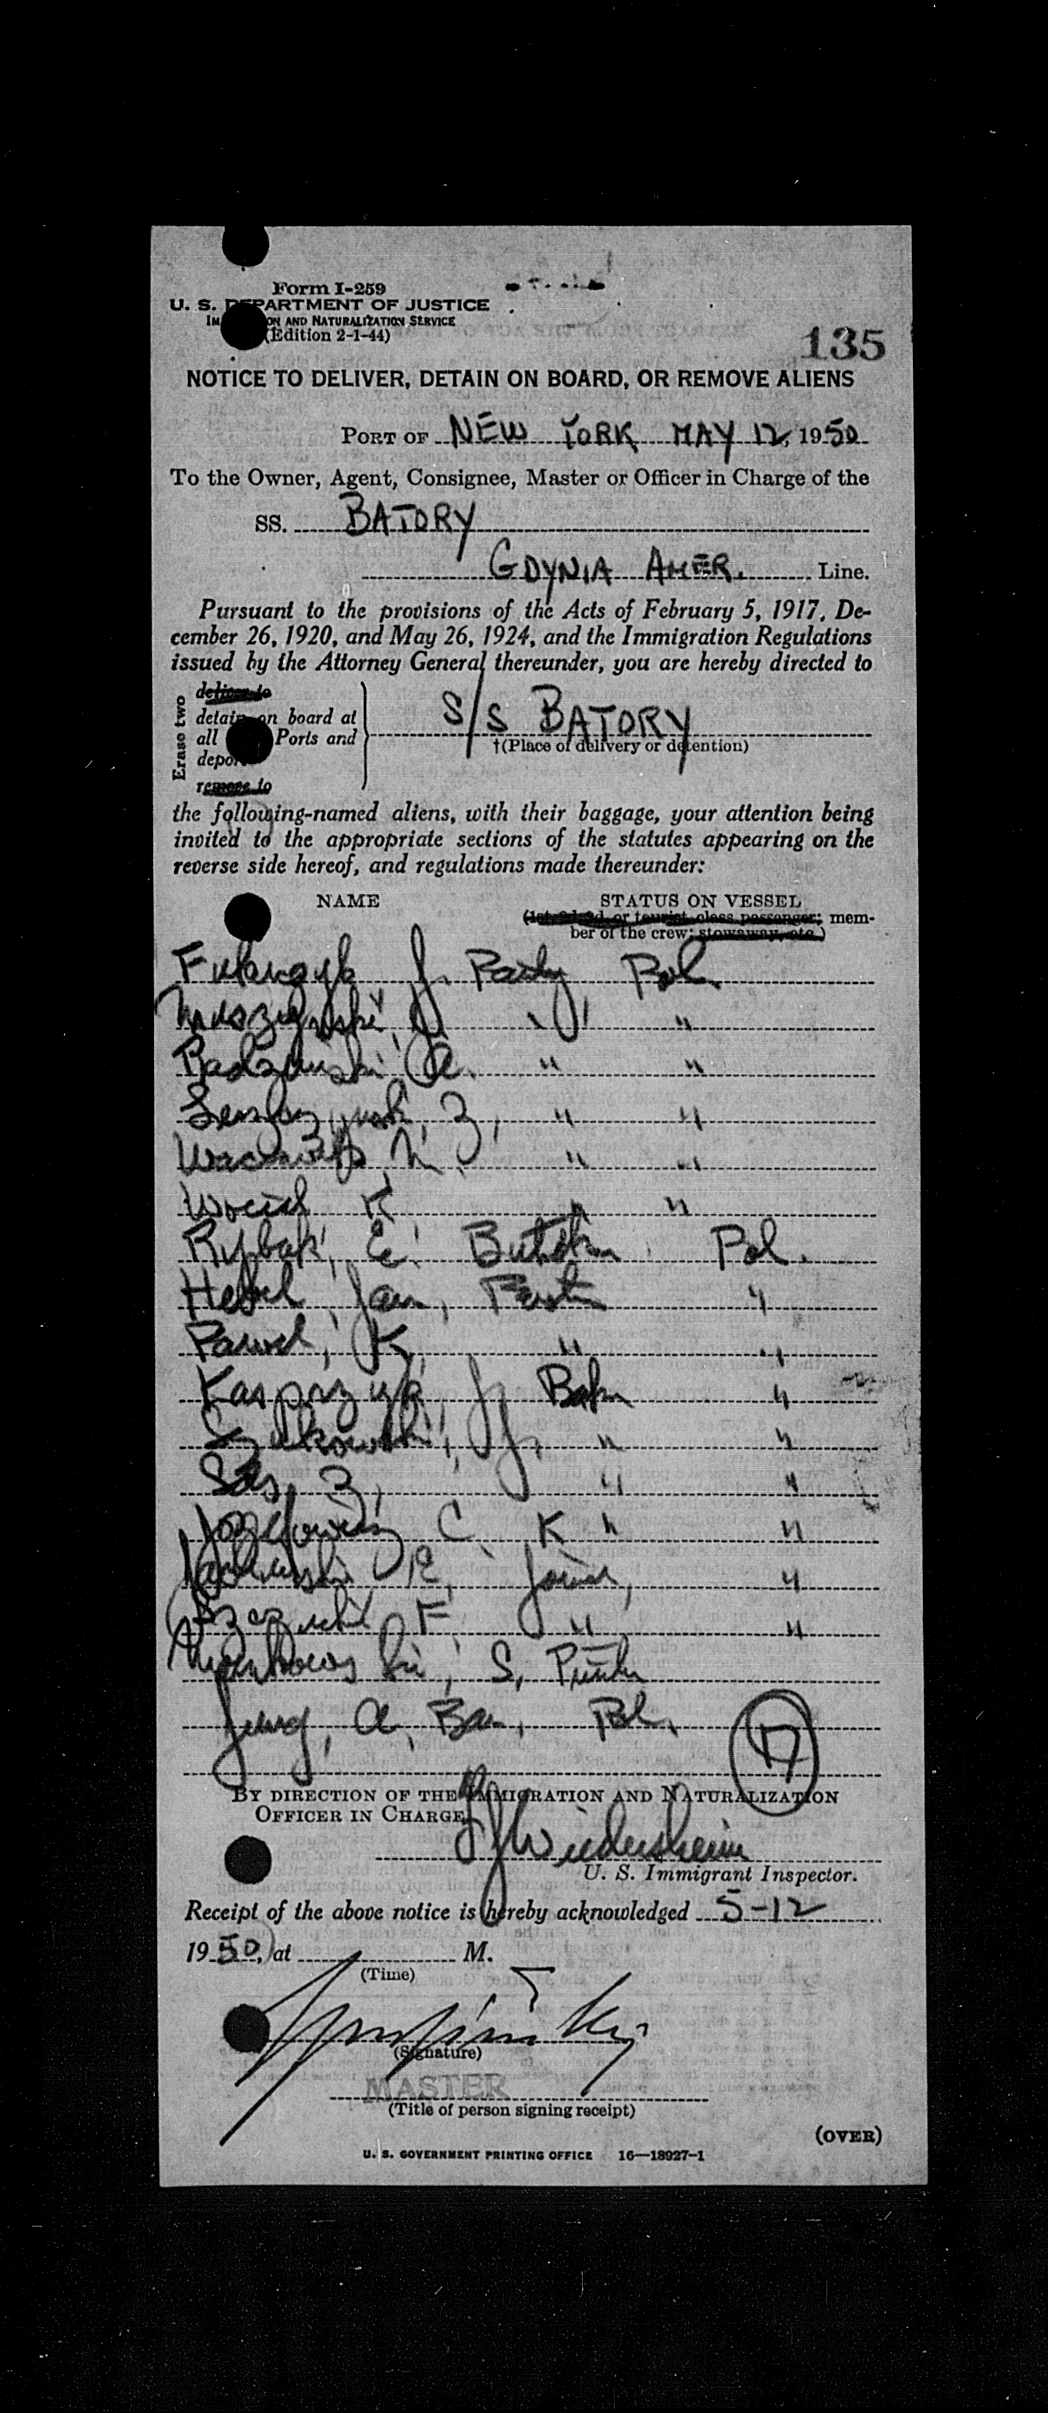 Form I-259
U. S. DEPARTMENT OF JUSTICE
ON AND NATURALIZATION SERVICE
(Edition 2-1-44)
135
NOTICE TO DELIVER, DETAIN ON BOARD, OR REMOVE ALIENS
PORT OF NEW YORK MAY 12, 1950
To the Owner, Agent, Consignee, Master or Officer in Charge of the
SS. BATORY
GDYNIA AMER. Line.
Pursuant to the provisions of the Acts of February 5, 1917, De-
cember 26, 1920, and May 26, 1924, and the Immigration Regulations
issued by the Attorney General thereunder, you are hereby directed to
Erase two
deliver to
detain on board at
all Ports and
deport
remove to
S/S BATORY
†(Place of delivery or detention)
the following-named aliens, with their baggage, your attention being
invited to the appropriate sections of the statutes appearing on the
reverse side hereof, and regulations made thereunder:
NAME STATUS ON VESSEL
(1st, 2d, 3d, or tourist class passenger; mem-
ber of the crew; stowaway, etc.)
J. Pol.
Muszynski, J. " "
Radzinski A. " "
Z, " "
M. " "
Wocial K " "
Rybak, E. Pol.
Hebel, Jan, "
K, " "
Kasprzyk, J. "
J, " "
Sas, Z, " "
Jozefowicz C K " "
R, Joiner, "
F " "
S,
Jung, A, Pol.
17
BY DIRECTION OF THE IMMIGRATION AND NATURALIZATION
OFFICER IN CHARGE
Wiedersheim
U. S. Immigrant Inspector.
Receipt of the above notice is hereby acknowledged 5-12
1950, at M.
(Time)
(Signature)
MASTER
(Title of person signing receipt)
(OVER)
U. S. GOVERNMENT PRINTING OFFICE 16—18927-1